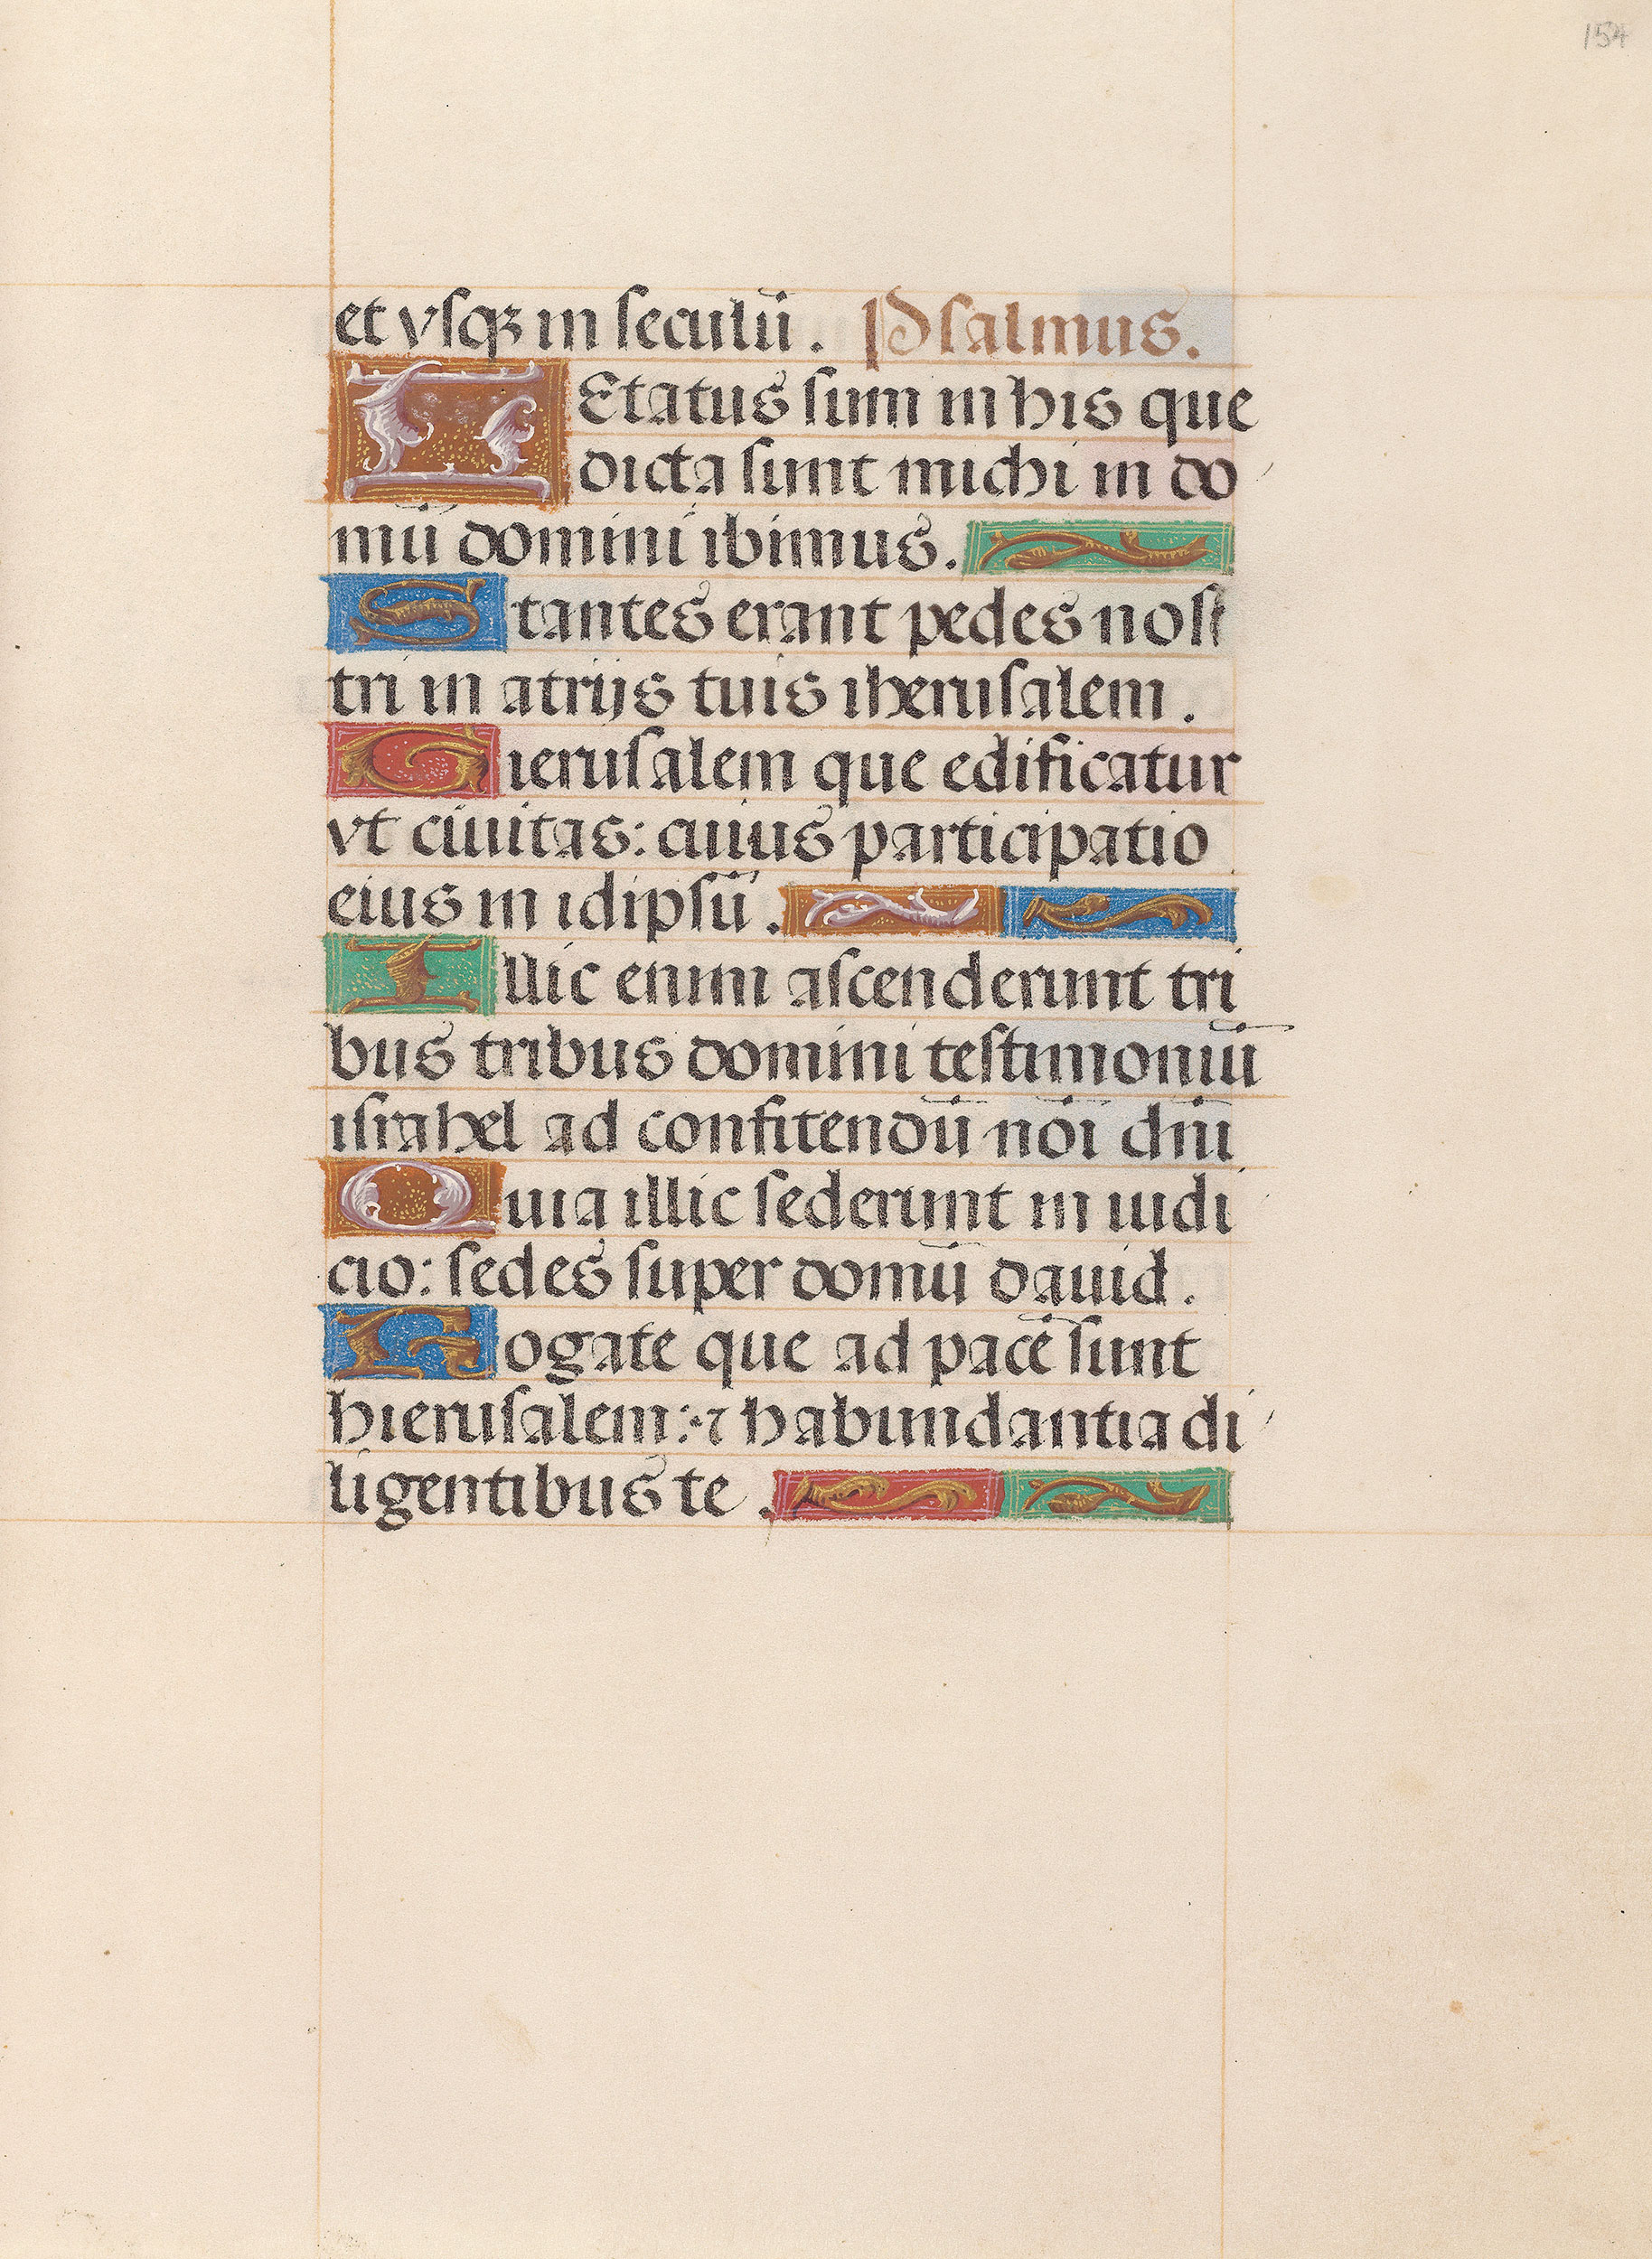 154
et vsqꝫ in seculū. Psalmus.
LEtatus sum in his que
dicta sunt michi in do
mū domini ibimus.
Stantes erant pedes nost
tri in atrijs tuis iherusalem.
Gierusalem que edificatur
vt ciuitas: cuius participatio
eius in idipsū.
Illic enim ascenderunt tri
bus tribus domini testimoniū
israhel ad confitendū nōi dn̄i
Quia illic sederunt in iudi
cio: sedes super domū dauid.
Rogate que ad pacē sunt
hierusalem: ⁊ habundantia di
ligentibus te.